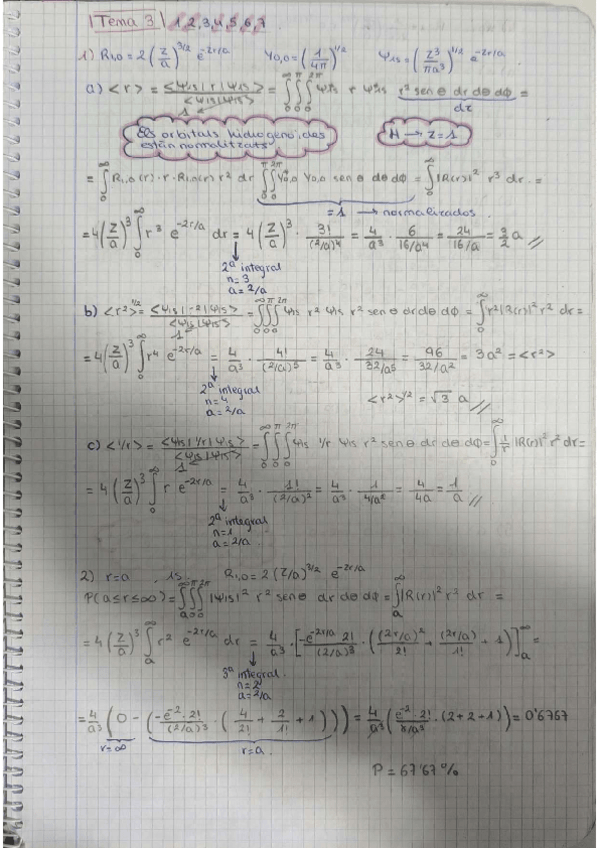 Tema 3 1,2,3,4,5,6,7
1) R1,0 = 2 (Z/a)^3/2 e^-2r/a Y0,0 = (1/4π)^1/2 Ψ1s = (Z³/πa³)^1/2 e^-2r/a
a) <r> = <Ψ1s|r|Ψ1s>/<Ψ1s|Ψ1s> = ∫0^∞ ∫0^π ∫0^2π Ψ1s r Ψ1s r² sen θ dr dθ dϕ =
dτ
Els orbitals hidrogenoides estàn normalitzats H → Z = 1
= ∫0^∞ R1,0(r) · r · R1,0(r) r² dr ∫0^π ∫0^2π Y0,0 Y0,0 sen θ dθ dϕ = ∫0^∞ |R(r)|² r³ dr =
= 1 → normalizados
= 4 (Z/a)³ ∫0^∞ r³ e^-2r/a dr = 4 (Z/a)³ · 3!/(2/a)⁴ = 4/a³ · 6/(16/a⁴) = 24/(16/a) = 3/2 a //
2ª integral
n = 3
a = 2/a
b) <r²>^1/2 = <Ψ1s|r²|Ψ1s>/<Ψ1s|Ψ1s> = ∫0^∞ ∫0^π ∫0^2π Ψ1s r² Ψ1s r² sen θ dr dθ dϕ = ∫0^∞ r² |R(r)|² r² dr =
1
= 4 (Z/a)³ ∫0^∞ r⁴ e^-2r/a = 4/a³ · 4!/(2/a)⁵ = 4/a³ · 24/(32/a⁵) = 96/(32/a²) = 3a² = <r²>
2ª integral
n = 4
a = 2/a
<r²>^1/2 = √3 a //
c) <1/r> = <Ψ1s|1/r|Ψ1s>/<Ψ1s|Ψ1s> = ∫0^∞ ∫0^π ∫0^2π Ψ1s 1/r Ψ1s r² sen θ dr dθ dϕ = ∫0^∞ 1/r |R(r)|² r² dr =
1
= 4 (Z/a)³ ∫0^∞ r e^-2r/a = 4/a³ · 1!/(2/a)² = 4/a³ · 1/(4/a²) = 4/4a = 1/a //
2ª integral
n = 1
a = 2/a
2) r = a , 1s R1,0 = 2 (Z/a)^3/2 e^-2r/a
P(a ≤ r ≤ ∞) = ∫a^∞ ∫0^π ∫0^2π |Ψ1s|² r² sen θ dr dθ dϕ = ∫a^∞ |R(r)|² r³ dr =
= 4 (Z/a)³ ∫a^∞ r² e^-2r/a dr = 4/a³ · [-e^-2r/a 2!/(2/a)³ · ((2r/a)²/2! + (2r/a)/1! + 1)]a^∞ =
3ª integral
n = 2
a = 2/a
= 4/a³ (0 - (-e^-2 · 2!/(2/a)³ · (4/2! + 2/1! + 1))) = 4/a³ (e^-2 · 2!/(8/a³) · (2+2+1)) = 0'6767
r = ∞ r = a
P = 67'67 %